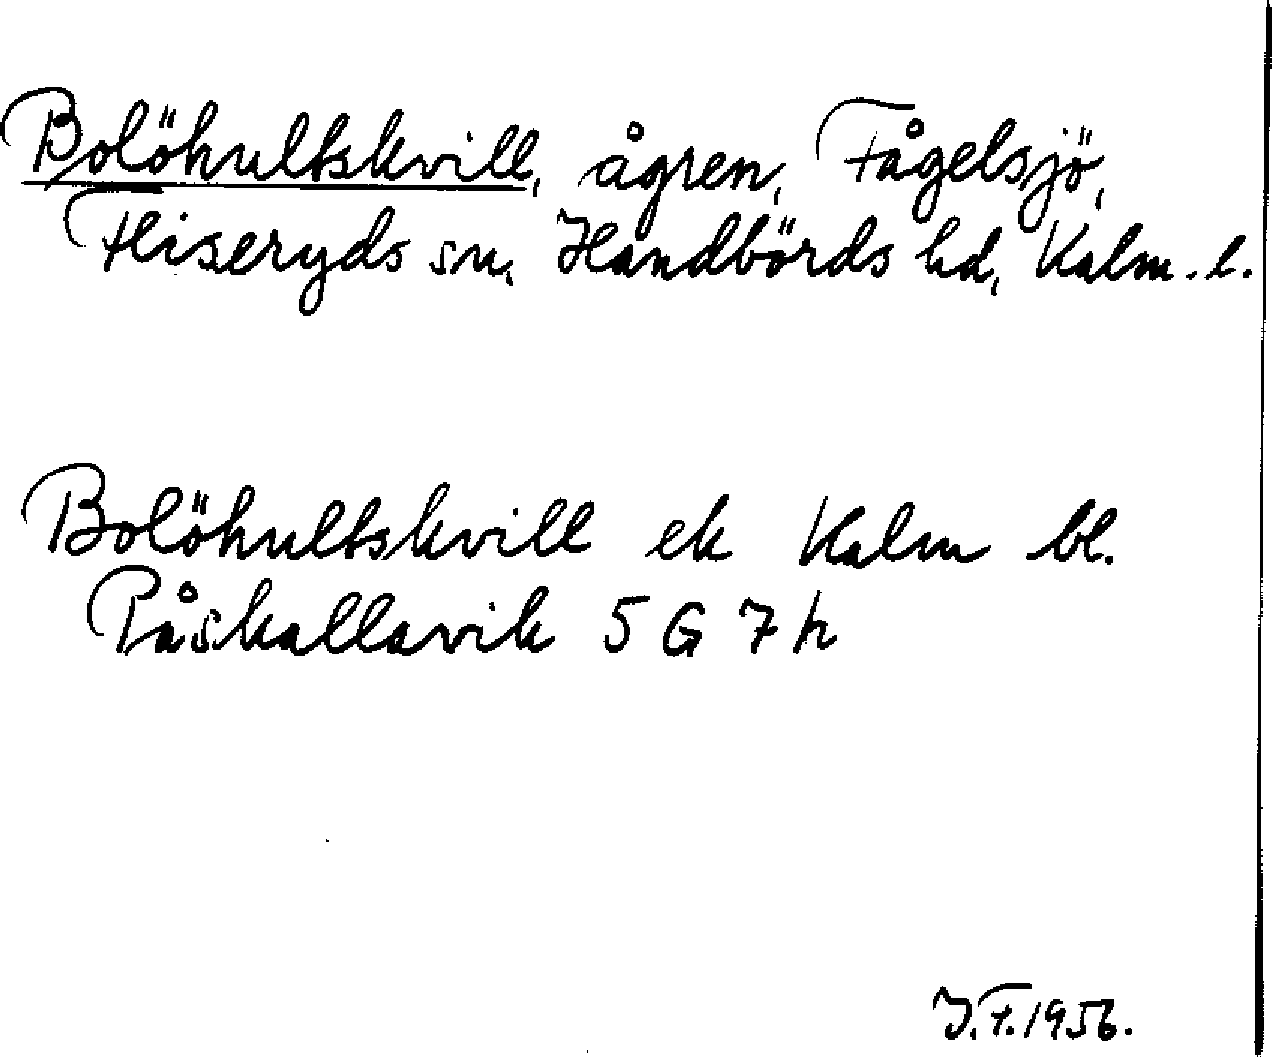 Bolöhultskvill, ågren, Fågelsjö,
Fliseryds sn, Handbörds hd, Kalm. l.
Bolöhultskvill ek Kalm bl.
Påskallavik 5 G 7 h
J.F. 1956.